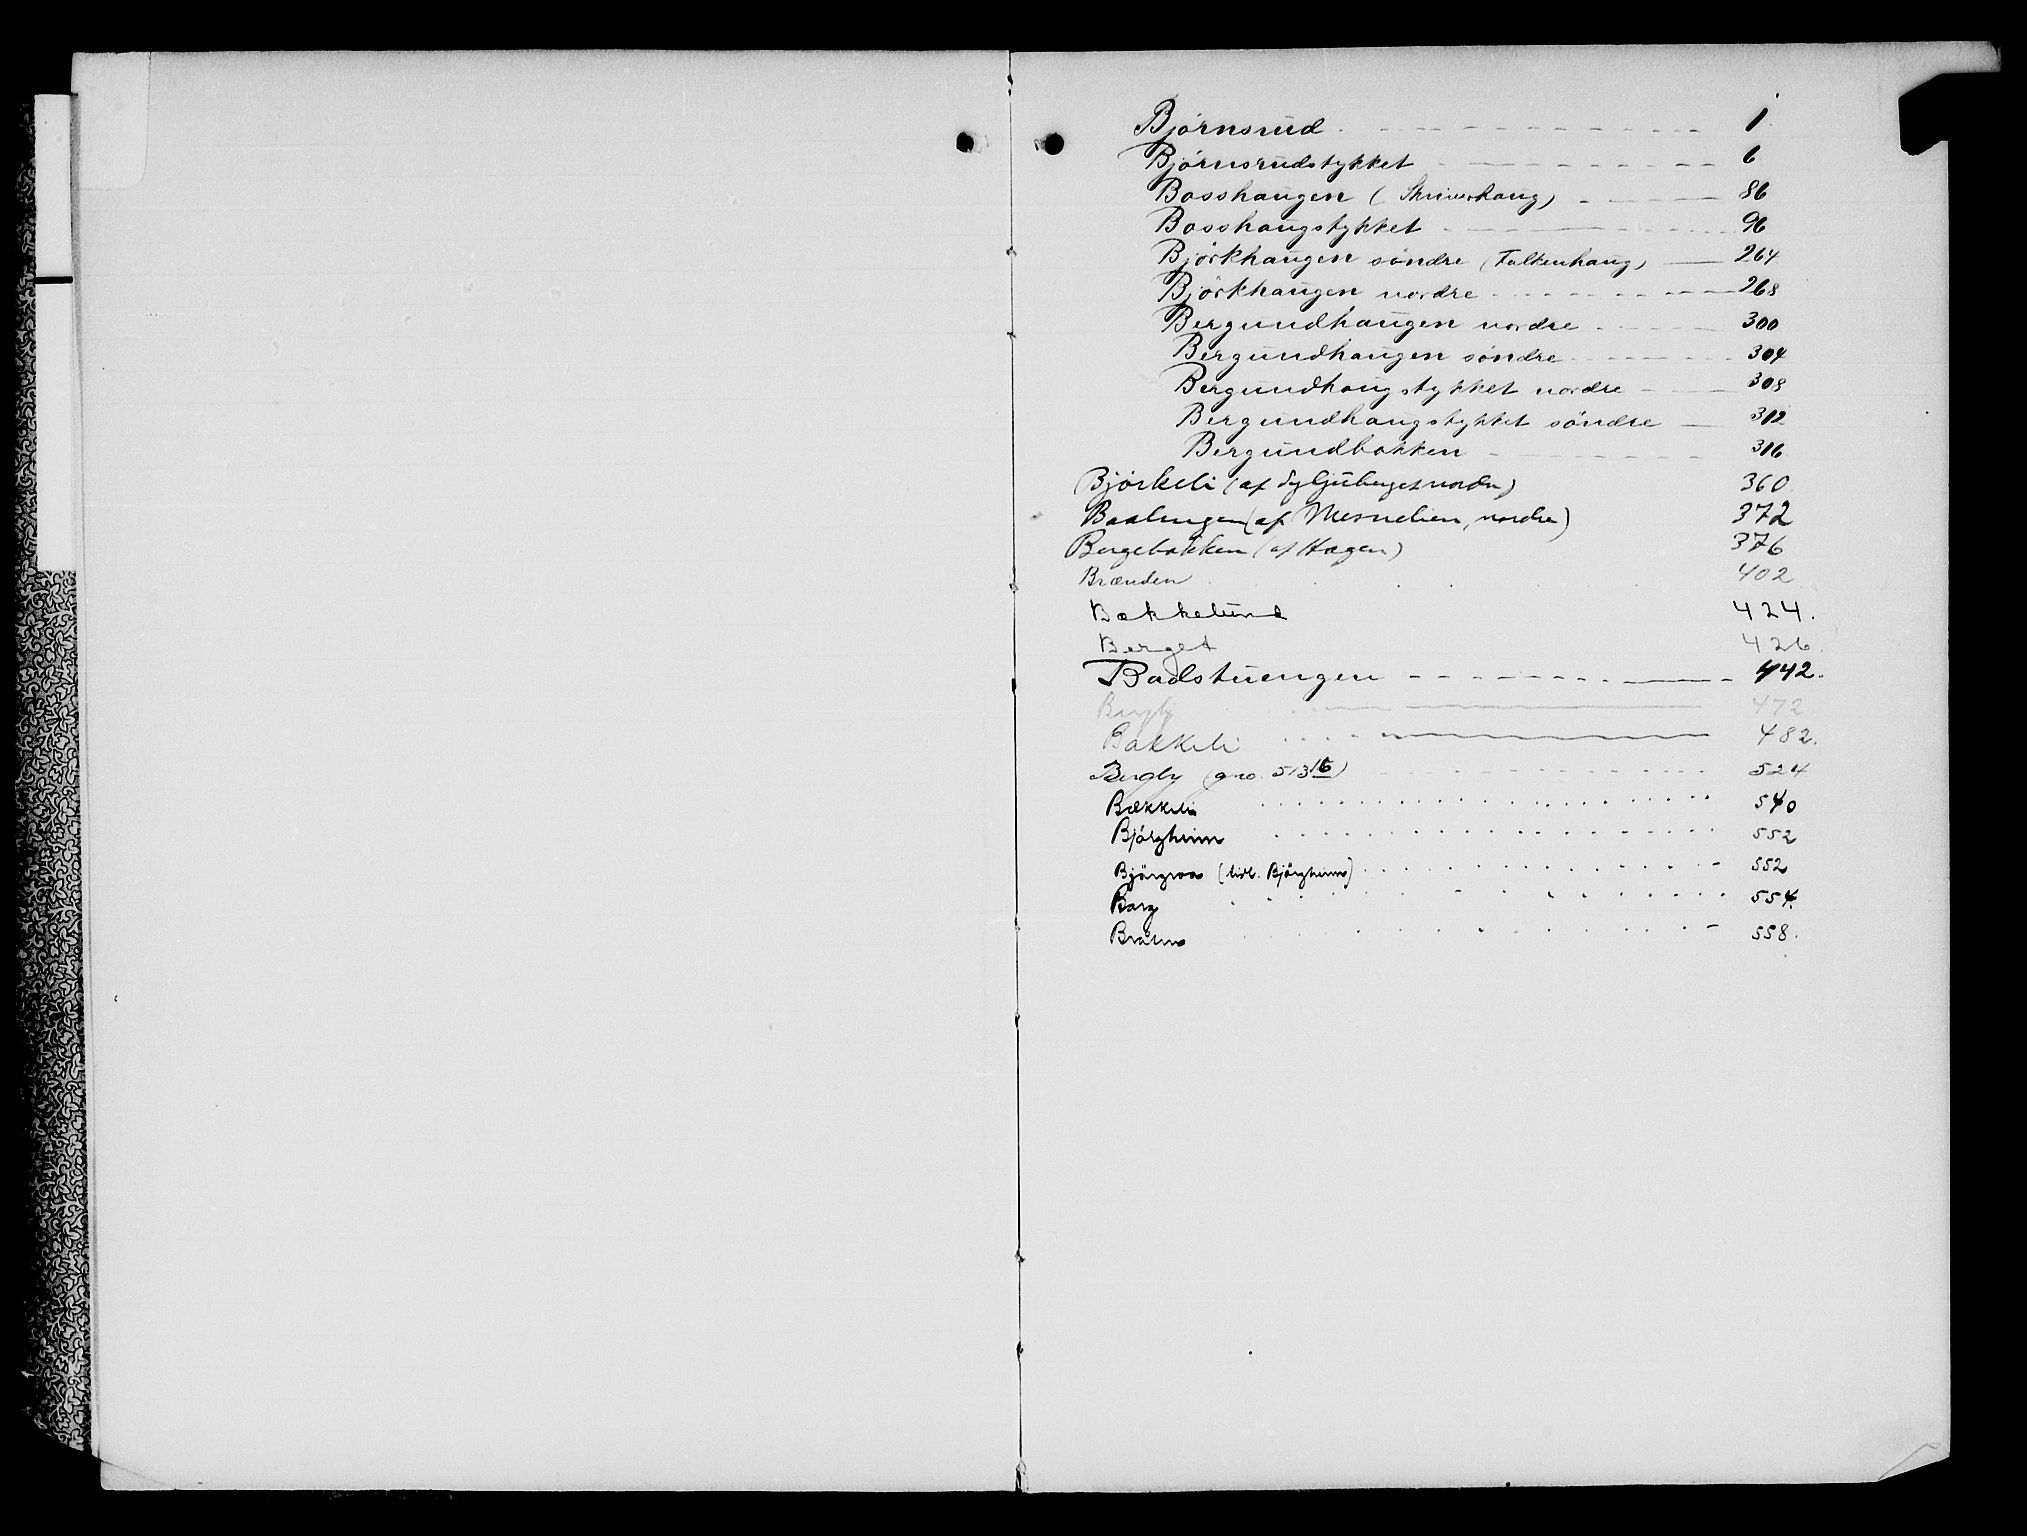 Bjørnsrud 1
Bjørnsrudstykket 6
Bosshaugen (Skriverhaug) 86
Bosshaugstykket 96
Bjørkhaugen søndre (Falkenhaug) 264
Bjørkhaugen nordre 268
Bergundhaugen nordre 300
Bergundhaugen søndre 304
Bergundhaugstykket nordre 308
Bergundhaugstykket søndre 312
Bergundbakken 316
Bjørkeli (af nordre) 360
(af Mesnelien, nordre) 372
Bergebakken (af Hagen) 376
Brænden 402
Bækkelund 424.
Berget 426.
Badstuengen 442.
Bergly 472
Bakkeli 482.
Bergly (gno. 513/16) 524
Bækkeli 540
Bjørgheim 552
Bjørgmoa (tidl. Bjørgheim) 552
Borg 554.
558.